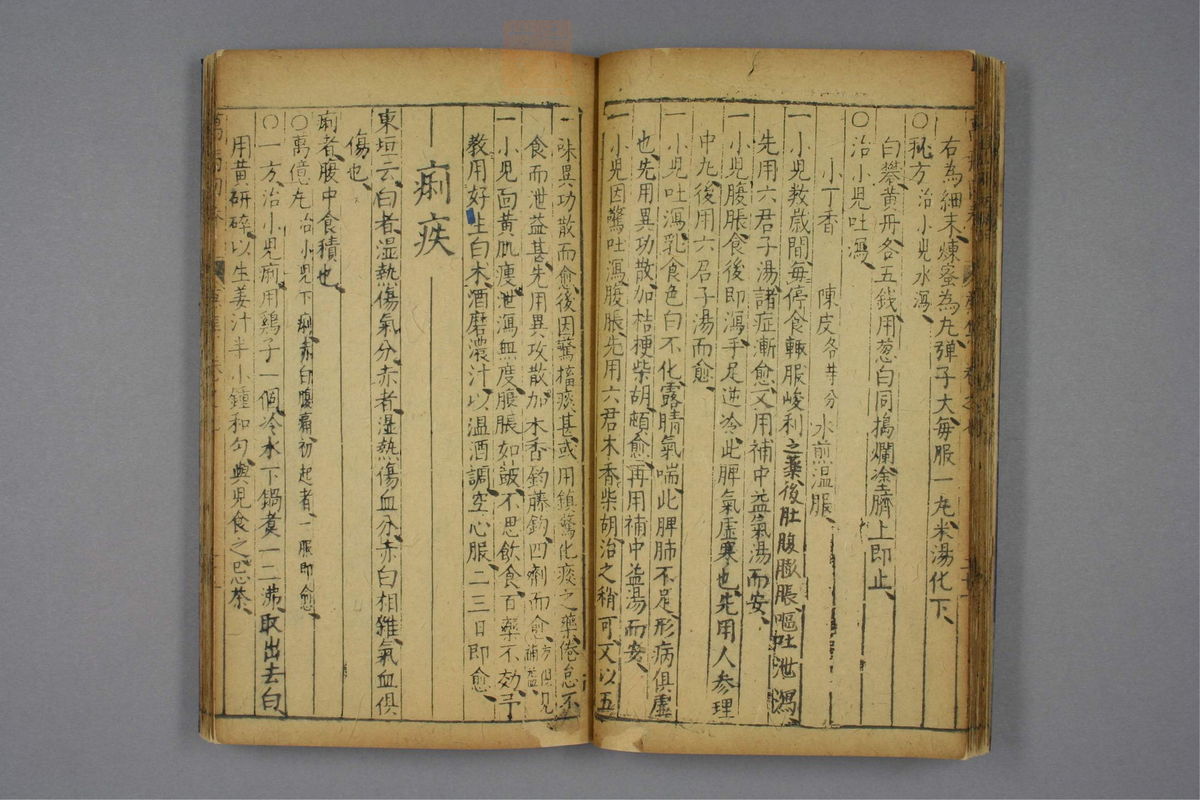 右為細末煉蜜為丸彈子大每服一丸米湯化下
〇秘方治小兒水瀉
白礬黃丹各五錢用葱白同搗爛塗臍上即止
〇治小兒吐瀉
小丁香 陳皮各等分 水煎温服
一小兒数歲間每停食輙服峻利之藥後肚腹膨脹嘔吐泄瀉
先用六君子湯諸症漸愈又用補中益氣湯而安
一小兒腹脹食後即瀉手足逆冷此脾氣虛寒也先用人参理
中丸後用六君子湯而愈
一小兒吐瀉乳食色白不化露睛氣喘此脾肺不足形病俱虛
也先用異功散加桔梗柴胡頗愈再用補中益湯而安
一小兒因驚吐瀉腹脹先用六君木香柴胡治之稍可又以五
味異功散而愈後因驚搐痰甚或用鎮驚化痰之藥倦怠不
食而泄益甚先用異攻散加木香釣藤鈎四劑而愈方俱見補益
一小兒面黃肌瘦泄瀉無度腹脹如皷不思飲食百藥不効予
教用好生白朮酒磨濃汁以温酒調空心服二三日即愈
痢疾
東垣云白者湿熱傷氣分赤者湿熱傷血分赤白相雜氣血俱
傷也
痢者腹中食積也
〇萬億丸 治小兒下痢赤白腹痛初起者一服即愈
〇一方治小兒痢用鷄子一個冷水下鍋煮一二沸取出去白
用黃研碎以生姜汁半小鍾和勻與兒食之忌茶